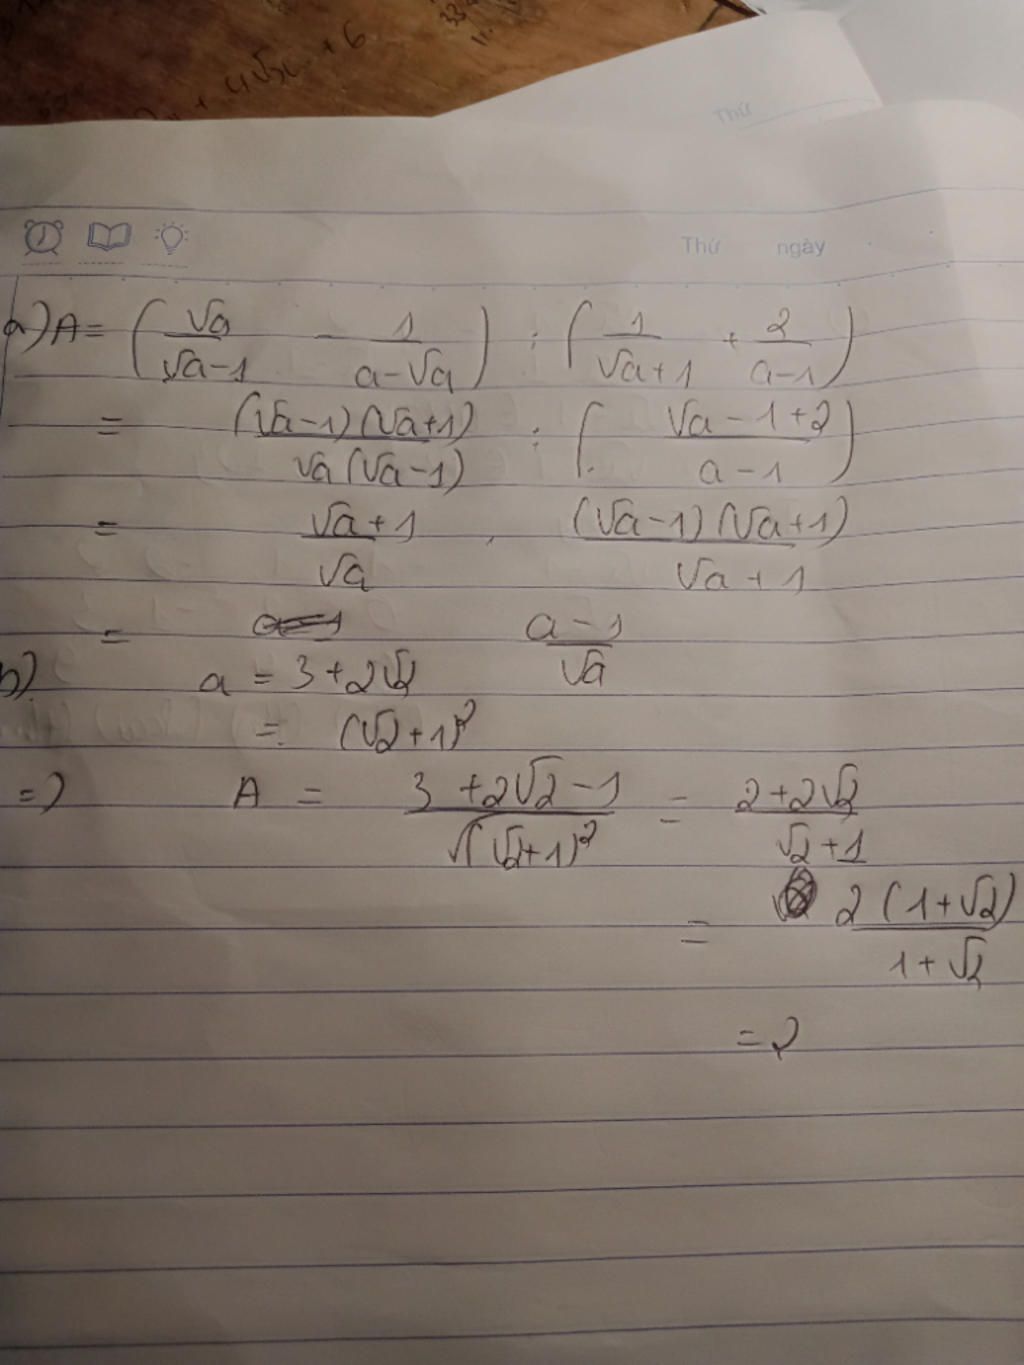 + 4√x + 6
Thứ
Thứ ngày
a) A = (√a/(√a-1) - 1/(a-√a)) : (1/(√a+1) + 2/(a-1))
= (√a-1)(√a+1)/(√a(√a-1)) : ((√a-1+2)/(a-1))
= (√a+1)/√a . (√a-1)(√a+1)/(√a+1)
= (a-1)/√a
b) a = 3+2√2
= (√2+1)²
=> A = (3+2√2-1)/√((√2+1)²) = (2+2√2)/(√2+1)
= 2(1+√2)/(1+√2)
= 2